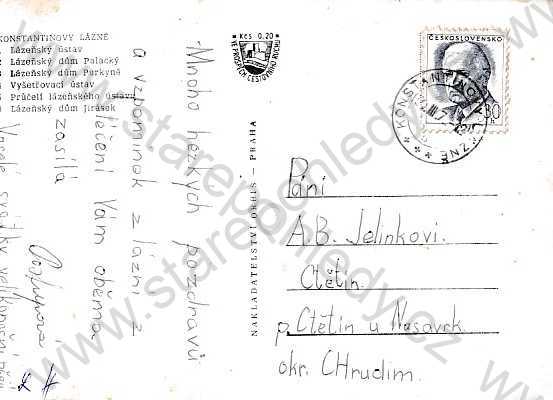 KONSTANTINOVY LÁZNĚ
Lázeňský ústav
Lázeňský dům Palacký
Lázeňský dům Purkyně
Vyšetřovací ústav
Průčelí lázeňského ústavu
Lázeňský dům Jirásek
Kčs 0,20
VE PROSPĚCH CESTOVNÍHO RUCHU
ČESKOSLOVENSKO
30
KONSTANTINOVY LÁZNĚ
Mnoho hezkých pozdravů
a vzpomínek z lázní z
léčení Vám oběma
zasílá
Veselé svátky velikonoční
NAKLADATELSTVÍ ORBIS — PRAHA
Páni
A.B. Jelinkovi.
Ctětin.
p. Ctětin u Nasavrk
okr. CHrudim.
www.starepohledy.cz
www.starepohledy.cz
www.starepohledy.cz